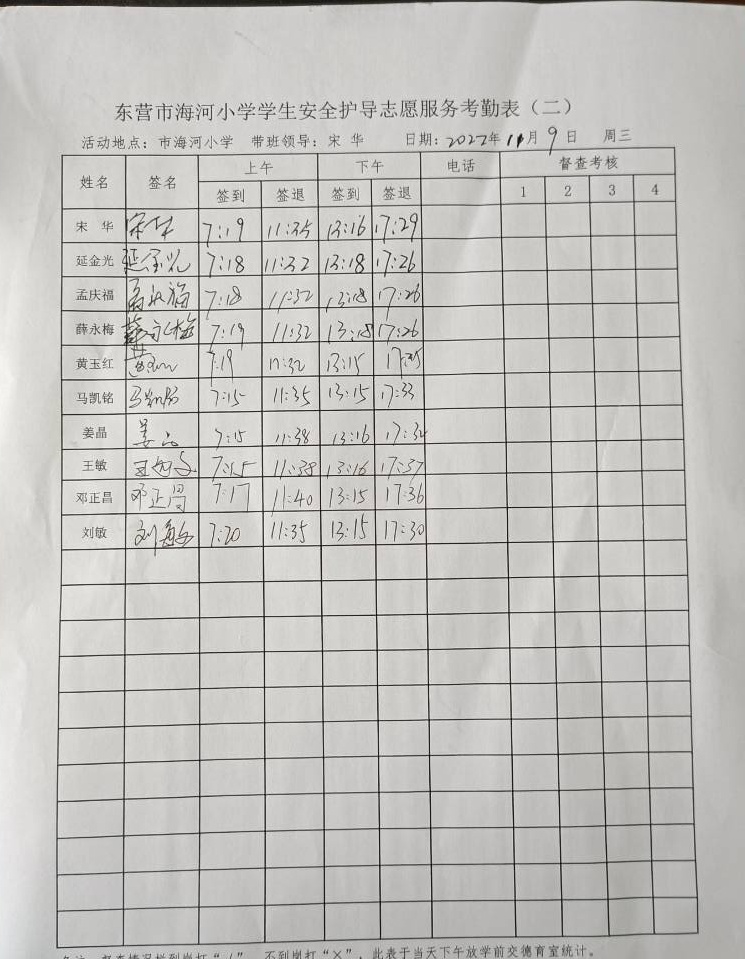 东营市海河小学学生安全护导志愿服务考勤表（二）
活动地点：市海河小学 带班领导：宋 华 日期：2022年 11月 9日 周三
姓名 签名 上午 下午 电话 督查考核
签到 签退 签到 签退 1 2 3 4
宋 华 宋华 7:19 11:35 13:16 17:29
延金光 延金光 7:18 11:32 13:18 17:26
孟庆福 孟庆福 7:18 11:32 13:18 17:26
薛永梅 薛永梅 7:19 11:32 13:18 17:26
黄玉红 7:19 11:32 13:15
马凯铭 马凯铭 7:15 11:35 13:15 17:33
姜晶 姜晶 7:15 11:38 13:16 17:34
王敏 王敏 7:15 11:38 13:16 17:37
邓正昌 邓正昌 7:17 11:40 13:15 17:36
刘敏 刘敏 7:20 11:35 13:15 17:30
备注：督查情况栏到岗打“√”，不到岗打“×”，此表于当天下午放学前交德育室统计。